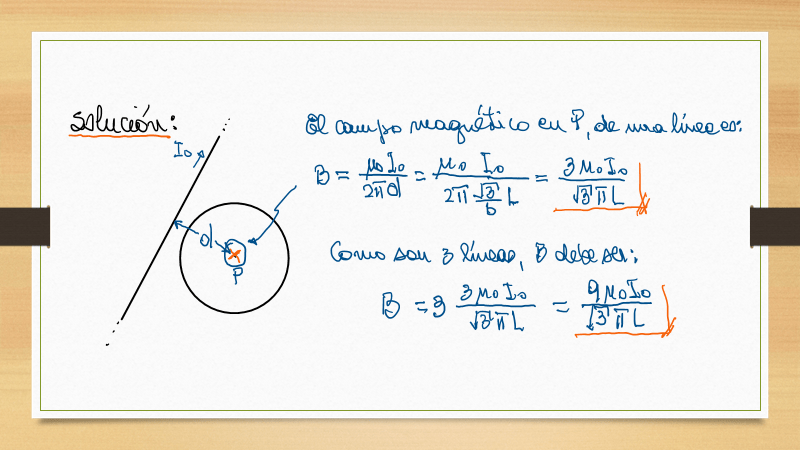 Solución:
I₀
d
P
El campo magnético en P, de una línea es:
B = μ₀I₀/2πd = μ₀ I₀/(2π √3/6 L) = 3μ₀I₀/(√3 π L)
Como son 3 líneas, B debe ser:
B = 3 3μ₀I₀/(√3 π L) = 9μ₀I₀/(√3 π L)